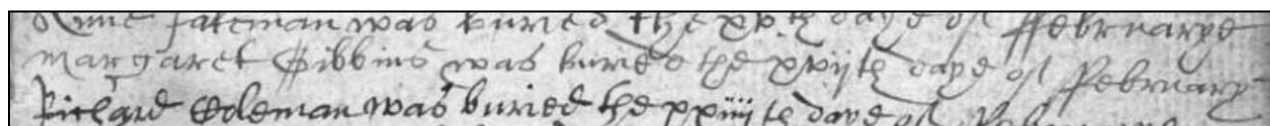 Anne Fateman was buried the xxth daye of ffebruarye
Margaret Gibbins was buried the xxijth daye of ffebruary
Richard Coleman was buried the xxiiijth daye of